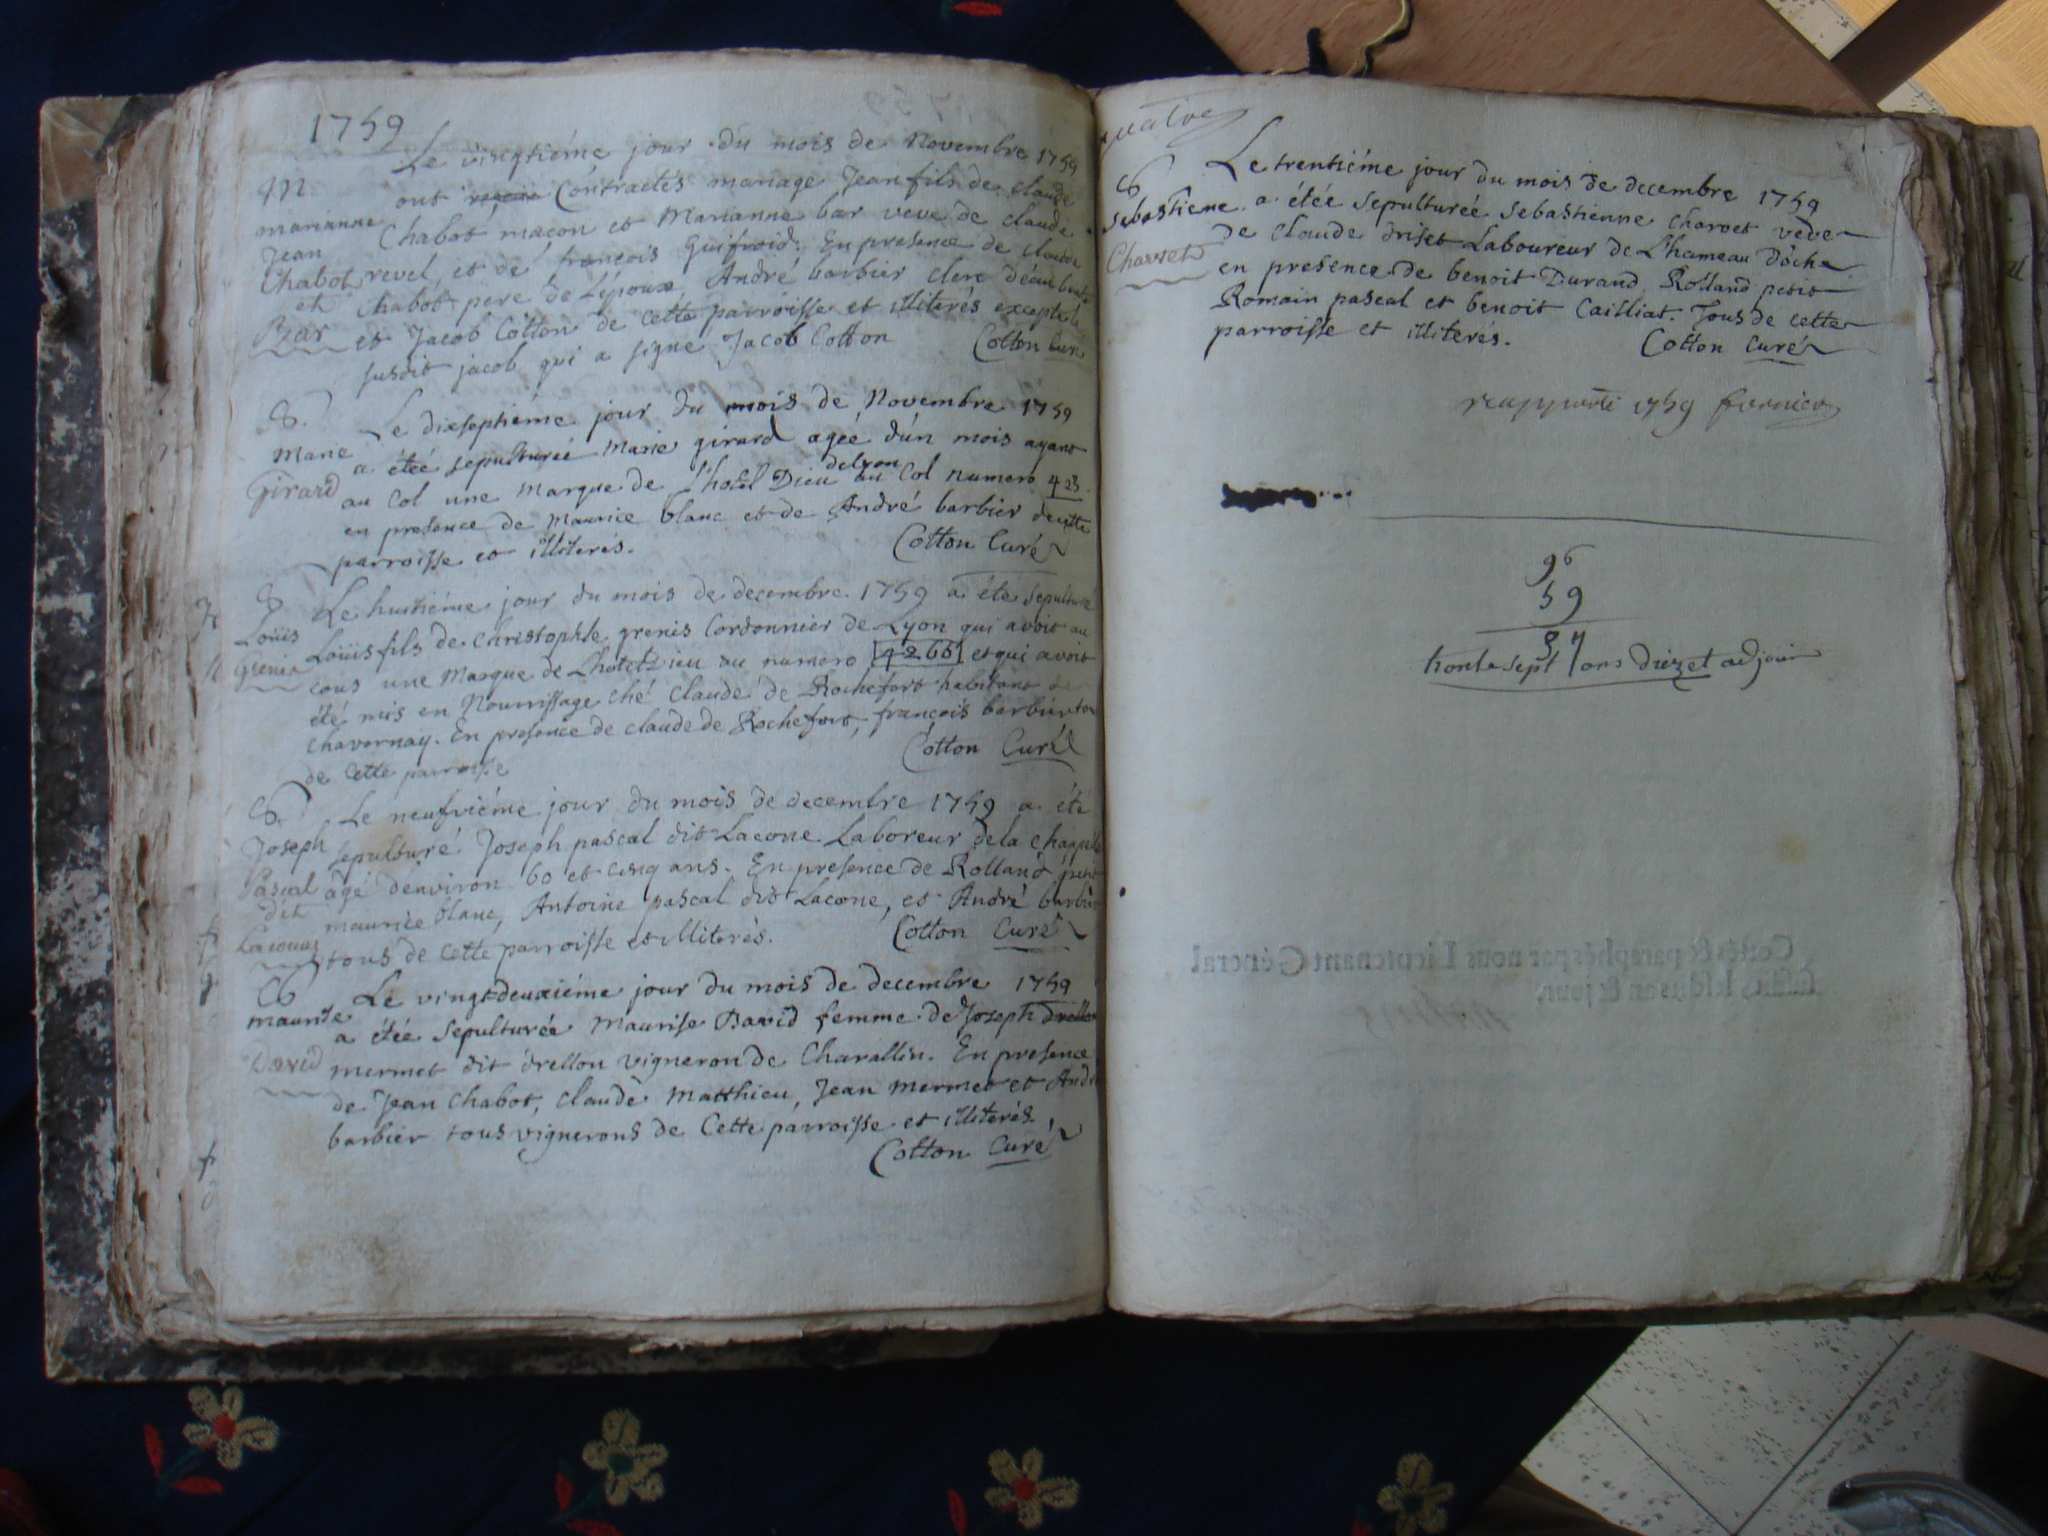 1759
Le vingtiéme jour du mois de Novembre 1759
M
ont Contractés mariage Jean fils de claude
marianne
Chabot maçon et Marianne bar veve de claude
Jean
revel, et de françois Guifroid. En presence de claude
Chabot
et
Chabot pere de L'époux André barbier clerc
Bar
et Jacob Cotton de cette parroisse et illiterés excepté le
susdit jacob qui a signé Jacob Cotton Cotton Curé
S.
Le dixseptiéme jour du mois de Novembre 1759
Marie
a étéé sepulturéé Marie girard agéé d'un mois ayant
Girard
delyon
au Col une Marque de l'hotel Dieu au Col numero 423
en presence de Maurice blanc et de André barbier de cette
parroisse et illiterés. Cotton Curé
S
Le huitiéme jour du mois de decembre 1759 a été sepulturé
Loüis
Loüis fils de Christophle grenis Cordonnier de Lyon qui avoit au
Grenis
cous une Marque de L'hotel Dieu au numero 4266 et qui avoit
été mis en Nourrissage ché claude de Rochefort habitant de
chavornay. En presence de claude de Rochefort, françois barbier tous
de cette parroisse Cotton Curé
S.
Le neufviéme jour du mois de decembre 1759 a été
Joseph
sepulturé Joseph pascal dit Lacone Laboreur de la chappelle
Pascal
agé d'environ 60 et cinq ans. En presence de Rolland petit
dit
maurice blanc, Antoine pascal dit Lacone, et André barbier
Laconaz
tous de cette parroisse et illiterés. Cotton Curé
S
Le vingtdeuxiéme jour du mois de decembre 1759
maurise
a étée sepulturée Maurise David femme de Joseph drellon
David
mermet dit drellon vigneron de Charallin. En presence
de Jean Chabot, claude Matthieu, Jean mermet et André
barbier tous vignerons de Cette parroisse et illiterés
Cotton Curé
quatre
Le trentiéme jour du mois de decembre 1759
S
Sebastiene
a étéé sepulturéé Sebastienne charvet veve
Charvet
de claude driset Laboureur de L'hameau d'oche
en presence de benoit Durand, Rolland petit
Romain pascal et benoit Cailliat. Tous de cette
parroisse et illiterés. Cotton Curé
rapporté 1759 fornier
96
59
37
trente sept ans diezet adjour
Cottés & paraphés par nous Lieutenant Général
susdit, lesdits an & jour,